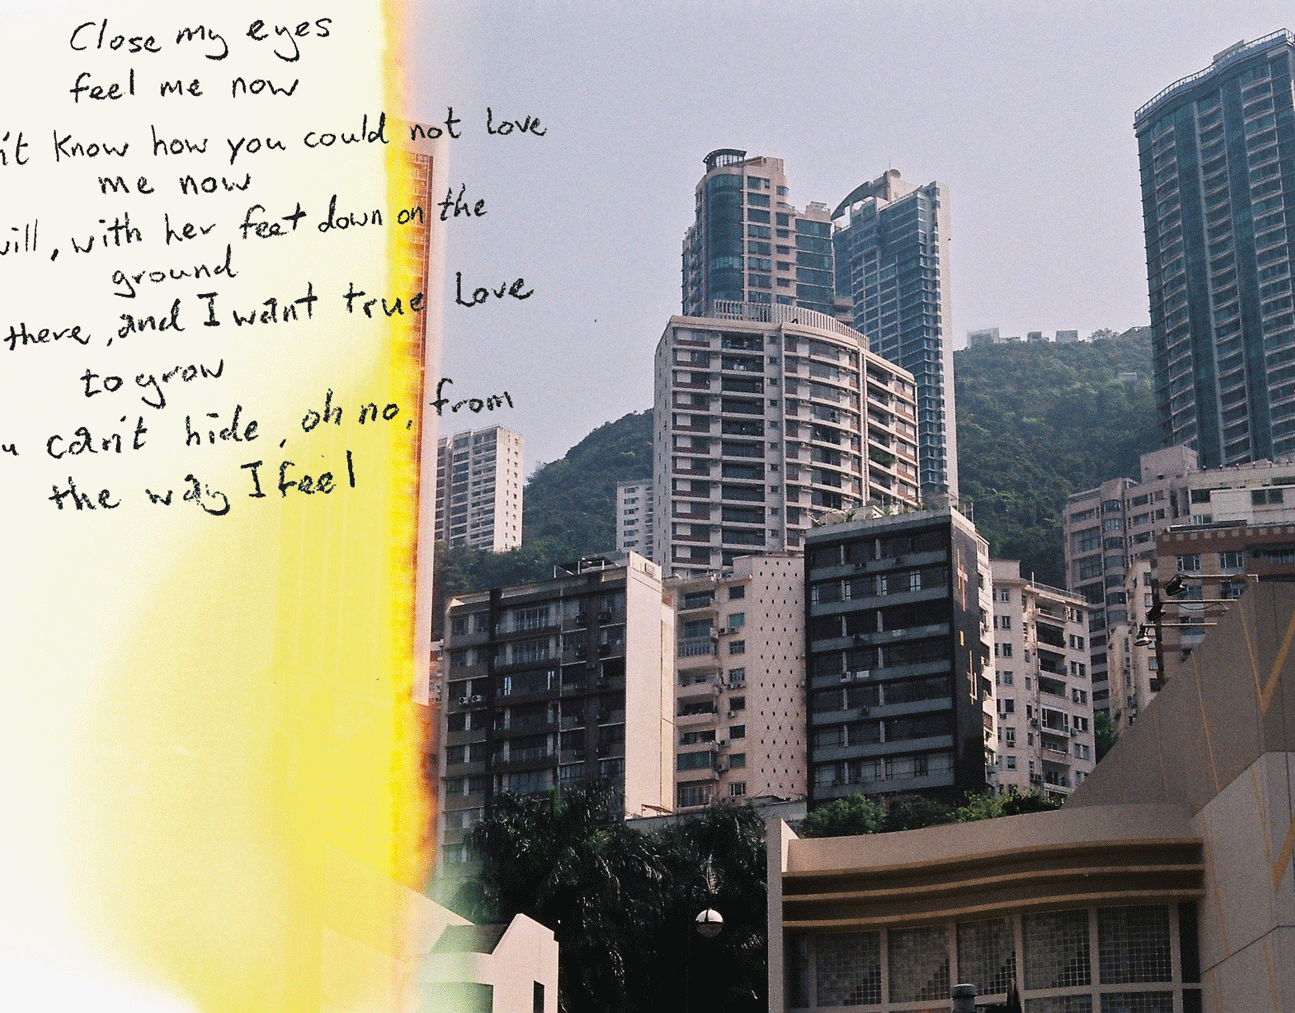 Close my eyes
feel me now
know how you could not love
me now
will, with her feet down on the
ground
there, and I want true love
to grow
can't hide, oh no, from
the way I feel